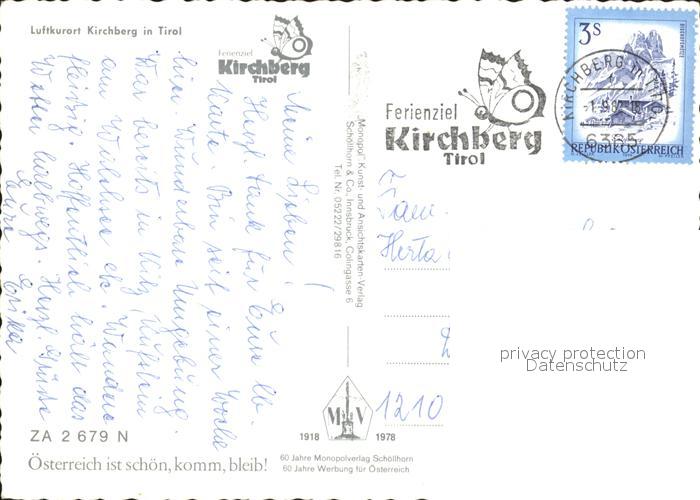 Luftkurort Kirchberg in Tirol
Ferienziel
Kirchberg
Tirol
Meine Lieben!
Herzl. Dank für Eure lb.
Karte. Bin seit einer Woche
hier. Wunderbare Umgebung.
War bereits in Kitz, Kufstein,
am Walchsee etc. Wandere
fleißig. Hoffentlich hält das
Wetter halbwegs. Herzl. Grüße
Eure Erika
ZA 2 679 N
Österreich ist schön, komm, bleib!
„Monopol" Kunst- und Ansichtskarten-Verlag
Schöllhorn & Co., Innsbruck, Colingasse 6
Tel. Nr. 05222/29816
1918 MV 1978
60 Jahre Monopolverlag Schöllhorn
60 Jahre Werbung für Österreich
Ferienziel
Kirchberg
Tirol
KIRCHBERG
6365
3S
REPUBLIK ÖSTERREICH
Fam.
Herta
1210
privacy protection
Datenschutz